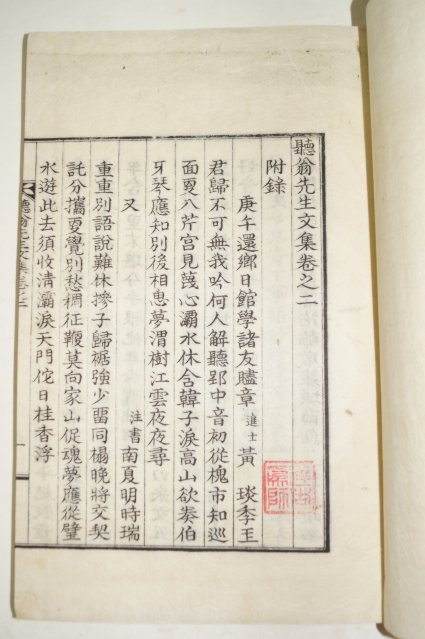 聽翁先生文集卷之二
附錄
庚午還鄉日館學諸友贐章 進士 黃 琰季玉
君歸不可無我吟何人解聽郢中音初從槐市知巡
面更入芹宮見蔑心灞水休含韓子淚高山欲奏伯
牙琴應知別後相思夢渭樹江雲夜夜尋
又 注書 南夏明時瑞
重重別語說難休摻子歸裾強少留同榻晚將交契
託分攜更覺別愁稠征鞭莫向家山促魂夢應從璧
水遊此去須收清灞淚天門佗日桂香浮
聽翁先生文集卷之二